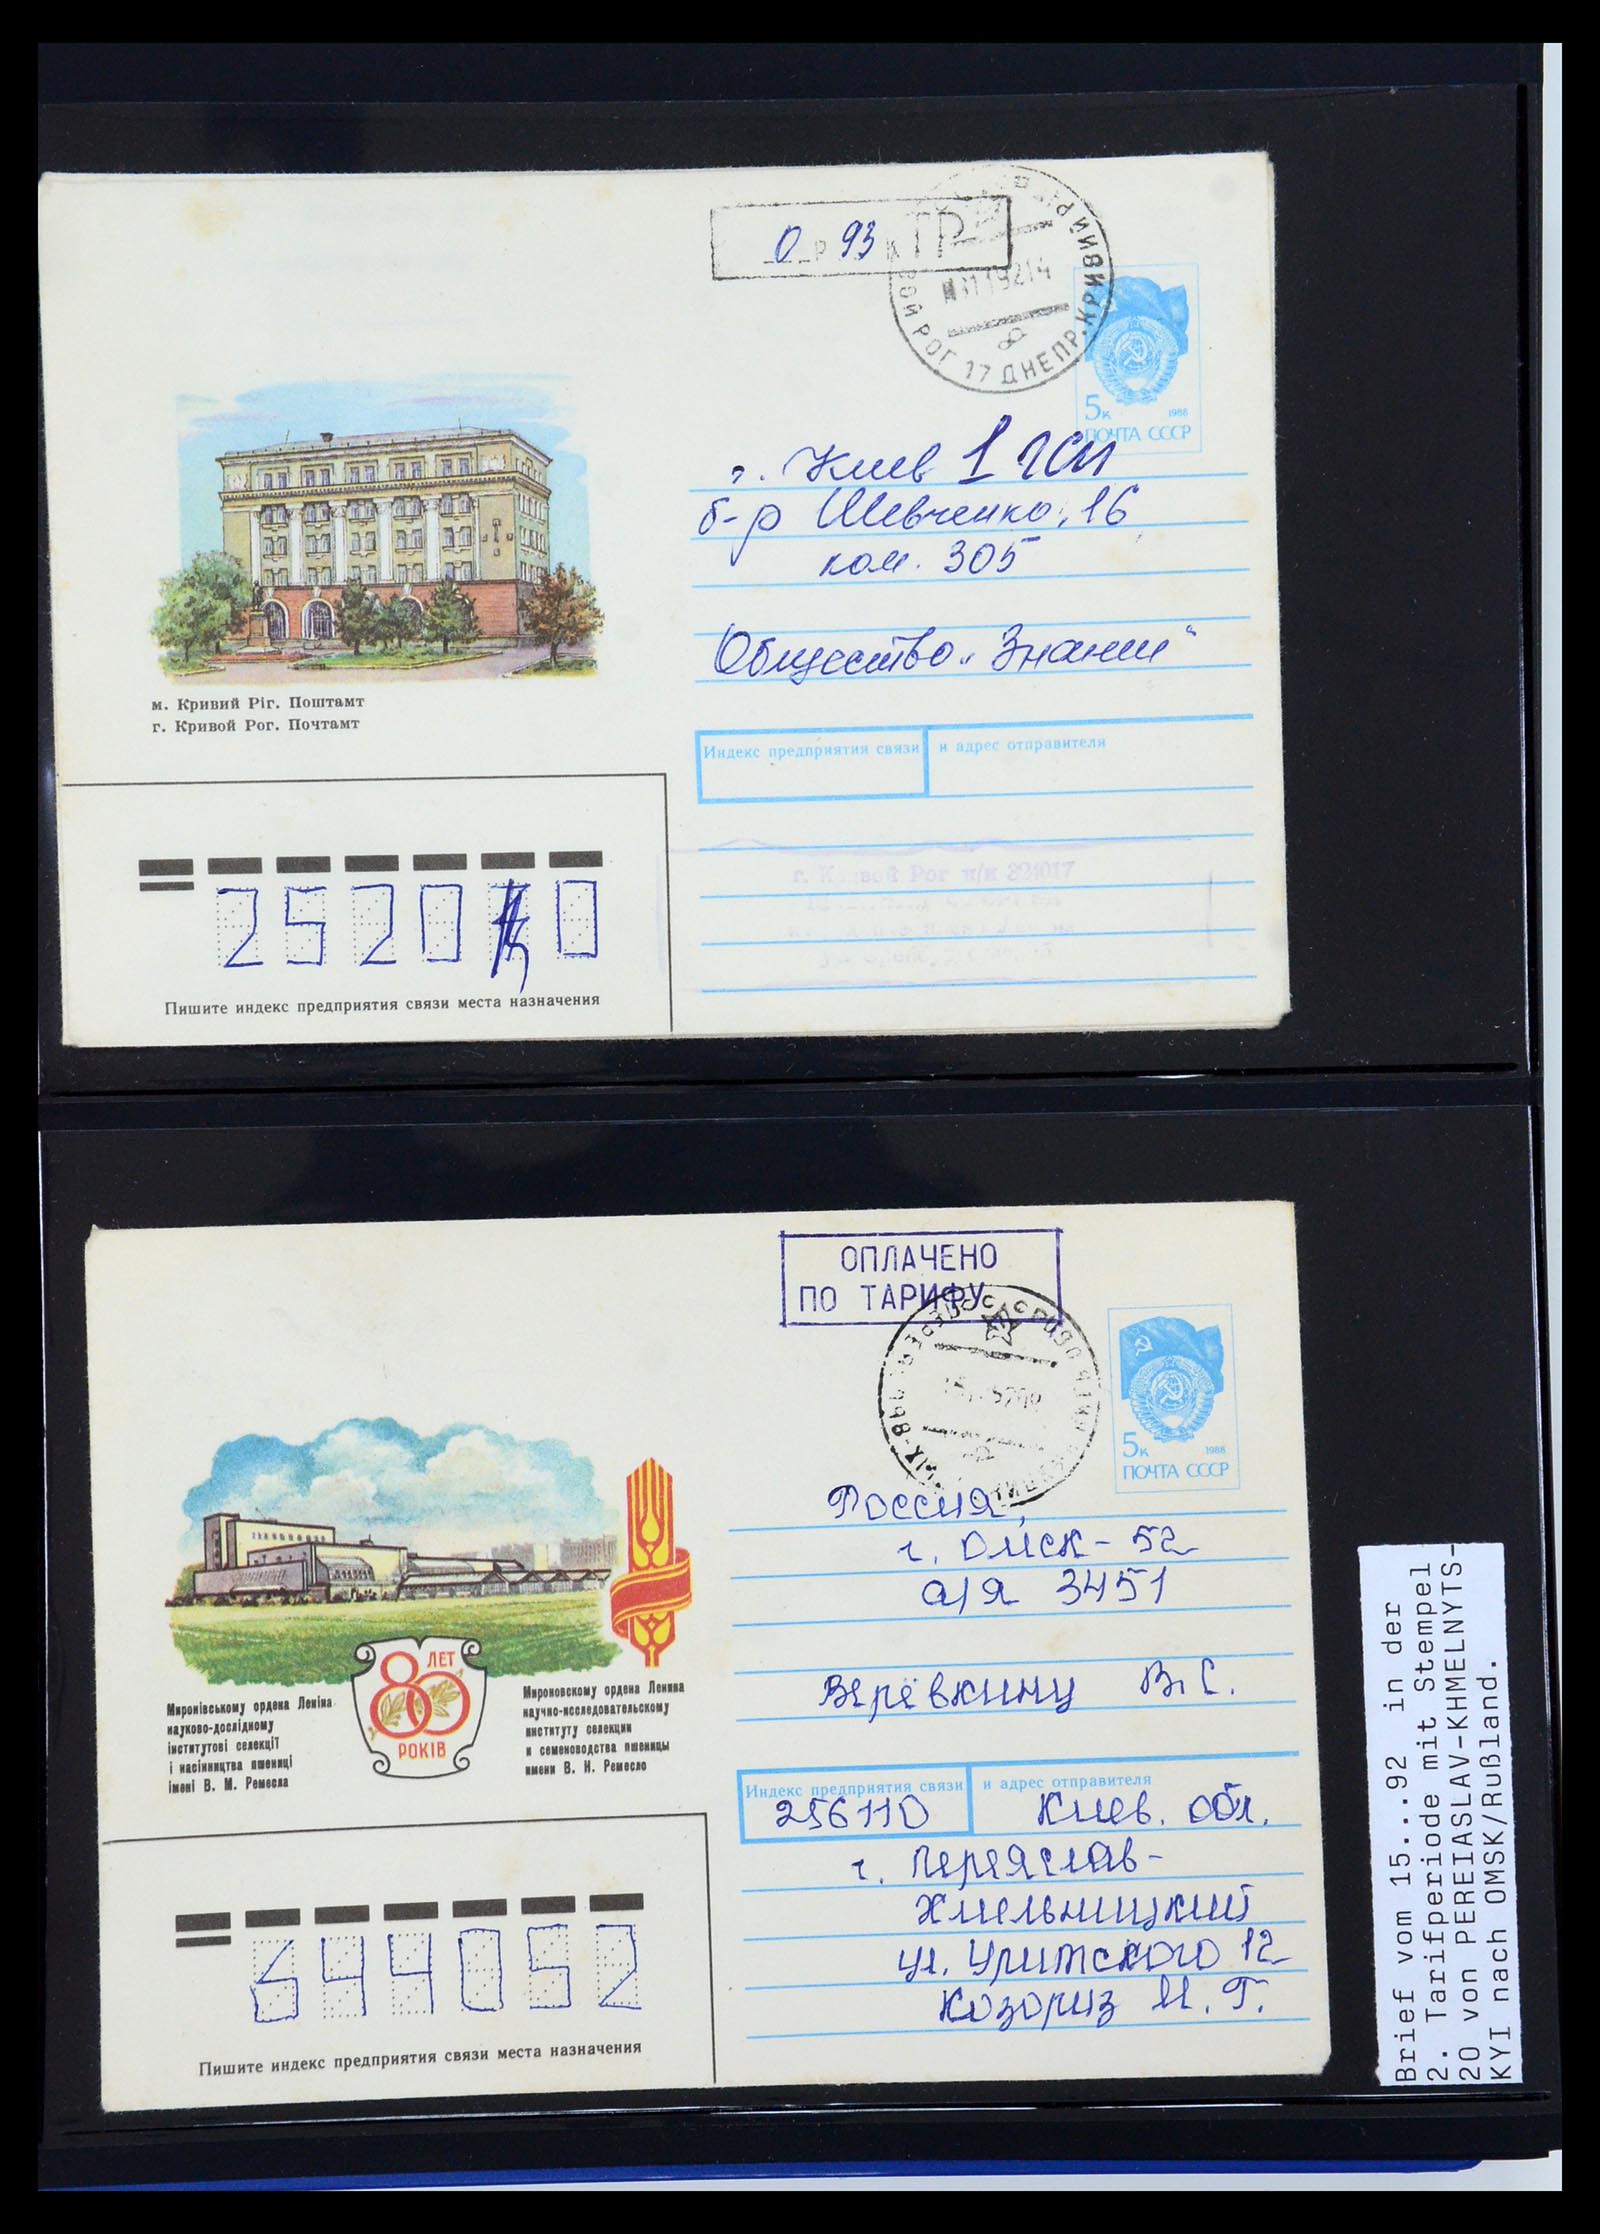 0 р 93 к ТР
ВОЙ РОГ 17 ДНЕПР. КРИВИЙ РІГ
5к 1988
ПОЧТА СССР
г. Киев 1 ГСП
б-р Шевченко, 16
ком. 305
Общество „Знание“
м. Кривий Ріг. Поштамт
г. Кривой Рог. Почтамт
Индекс предприятия связи и адрес отправителя
г. Кривой Рог п/и 324017
2520 0
Пишите индекс предприятия связи места назначения
ОПЛАЧЕНО
ПО ТАРИФУ
5к 1988
ПОЧТА СССР
Россия,
г. Омск-52
а/я 3451
Верёвкину В. С.
80 ЛЕТ
РОКІВ
Миронівському ордена Леніна
науково-дослідному
інститутові селекції
і насінництва пшениці
імені В. М. Ремесла
Мироновскому ордена Ленина
научно-исследовательскому
институту селекции
и семеноводства пшеницы
имени В. Н. Ремесло
Индекс предприятия связи и адрес отправителя
256110 Киев. обл.
г. Переяслав-
Хмельницкий
ул. Урицкого 12
Козориз М. Г.
644052
Пишите индекс предприятия связи места назначения
Brief vom 15...92 in der
2. Tarifperiode mit Stempel
20 von PEREIASLAV-KHMELNYTS-
KYI nach OMSK/Rußland.